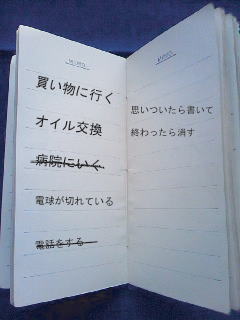 MEMO
買い物に行く
オイル交換
病院にいく
電球が切れている
電話をする
MEMO
思いついたら書いて
終わったら消す